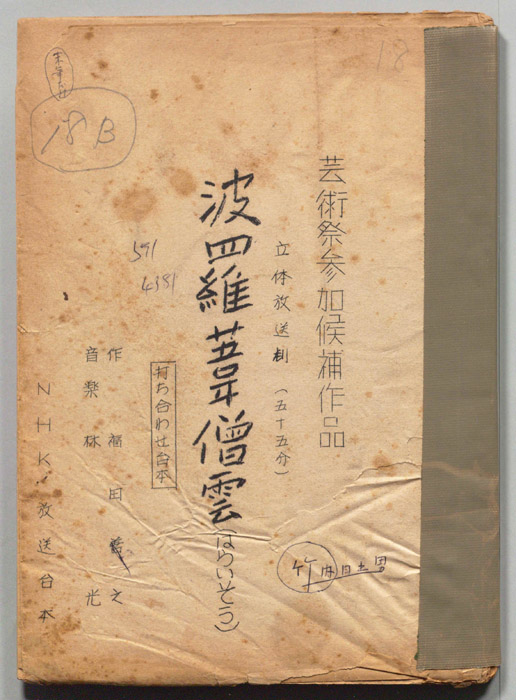 18
芸術祭参加候補作品
立体放送劇 (五十五分)
波四維葦僧雲(はらいそう)
打ち合わせ台本
作 福田善之
音楽 林 光
NHK 放送台本
18B
591
4381
竹内